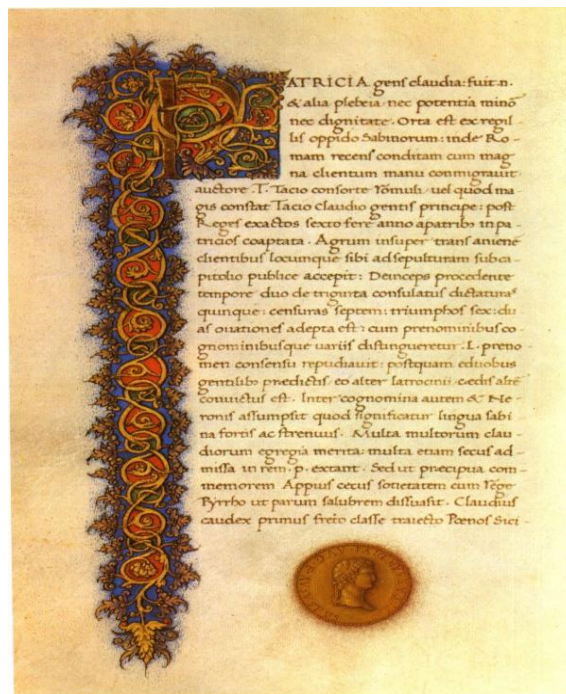 PATRICIA gens claudia: fuit .n.
& alia plebeia nec potentia minō
nec dignitate. Orta est ex regil-
lis oppido Sabinorum: inde Ro-
mam recens conditam cum mag
na clientum manu conmigrauit
auctore .T. Tacio consorte Romuli uel quod ma
gis constat Tacio claudio gentis principe: post
Reges exactos sexto fere anno a patribꝰ in pa-
tricios coaptata. Agrum insuper trans aniene
clientibus locumque sibi ad sepulturam sub ca-
pitolio publice accepit: Deinceps procedente
tempore duo de triginta consulatus dictaturas
quinque: censuras septem: triumphos sex: du
as ouationes adepta est: cum prenominibus co-
gnominibusque variis distingueretur .L. preno
men consensu repudiauit: postquam e duobus
gentilibꝰ predictis eo alter latrocinii cedis alter
conuictus est. Inter cognomina autem & Ne-
ronis assumpsit quod significatur lingua sabi
na fortis ac strenuus. Multa multorum clau-
diorum egregia merita: multa etiam secus ad-
missa in rem .p. extant. Sed ut precipua com-
memorem Appius cecus societatem cum rege
Pyrrho ut parum salubrem dissuasit. Claudius
caudex primus freto classe traiecto Poenos Sici-